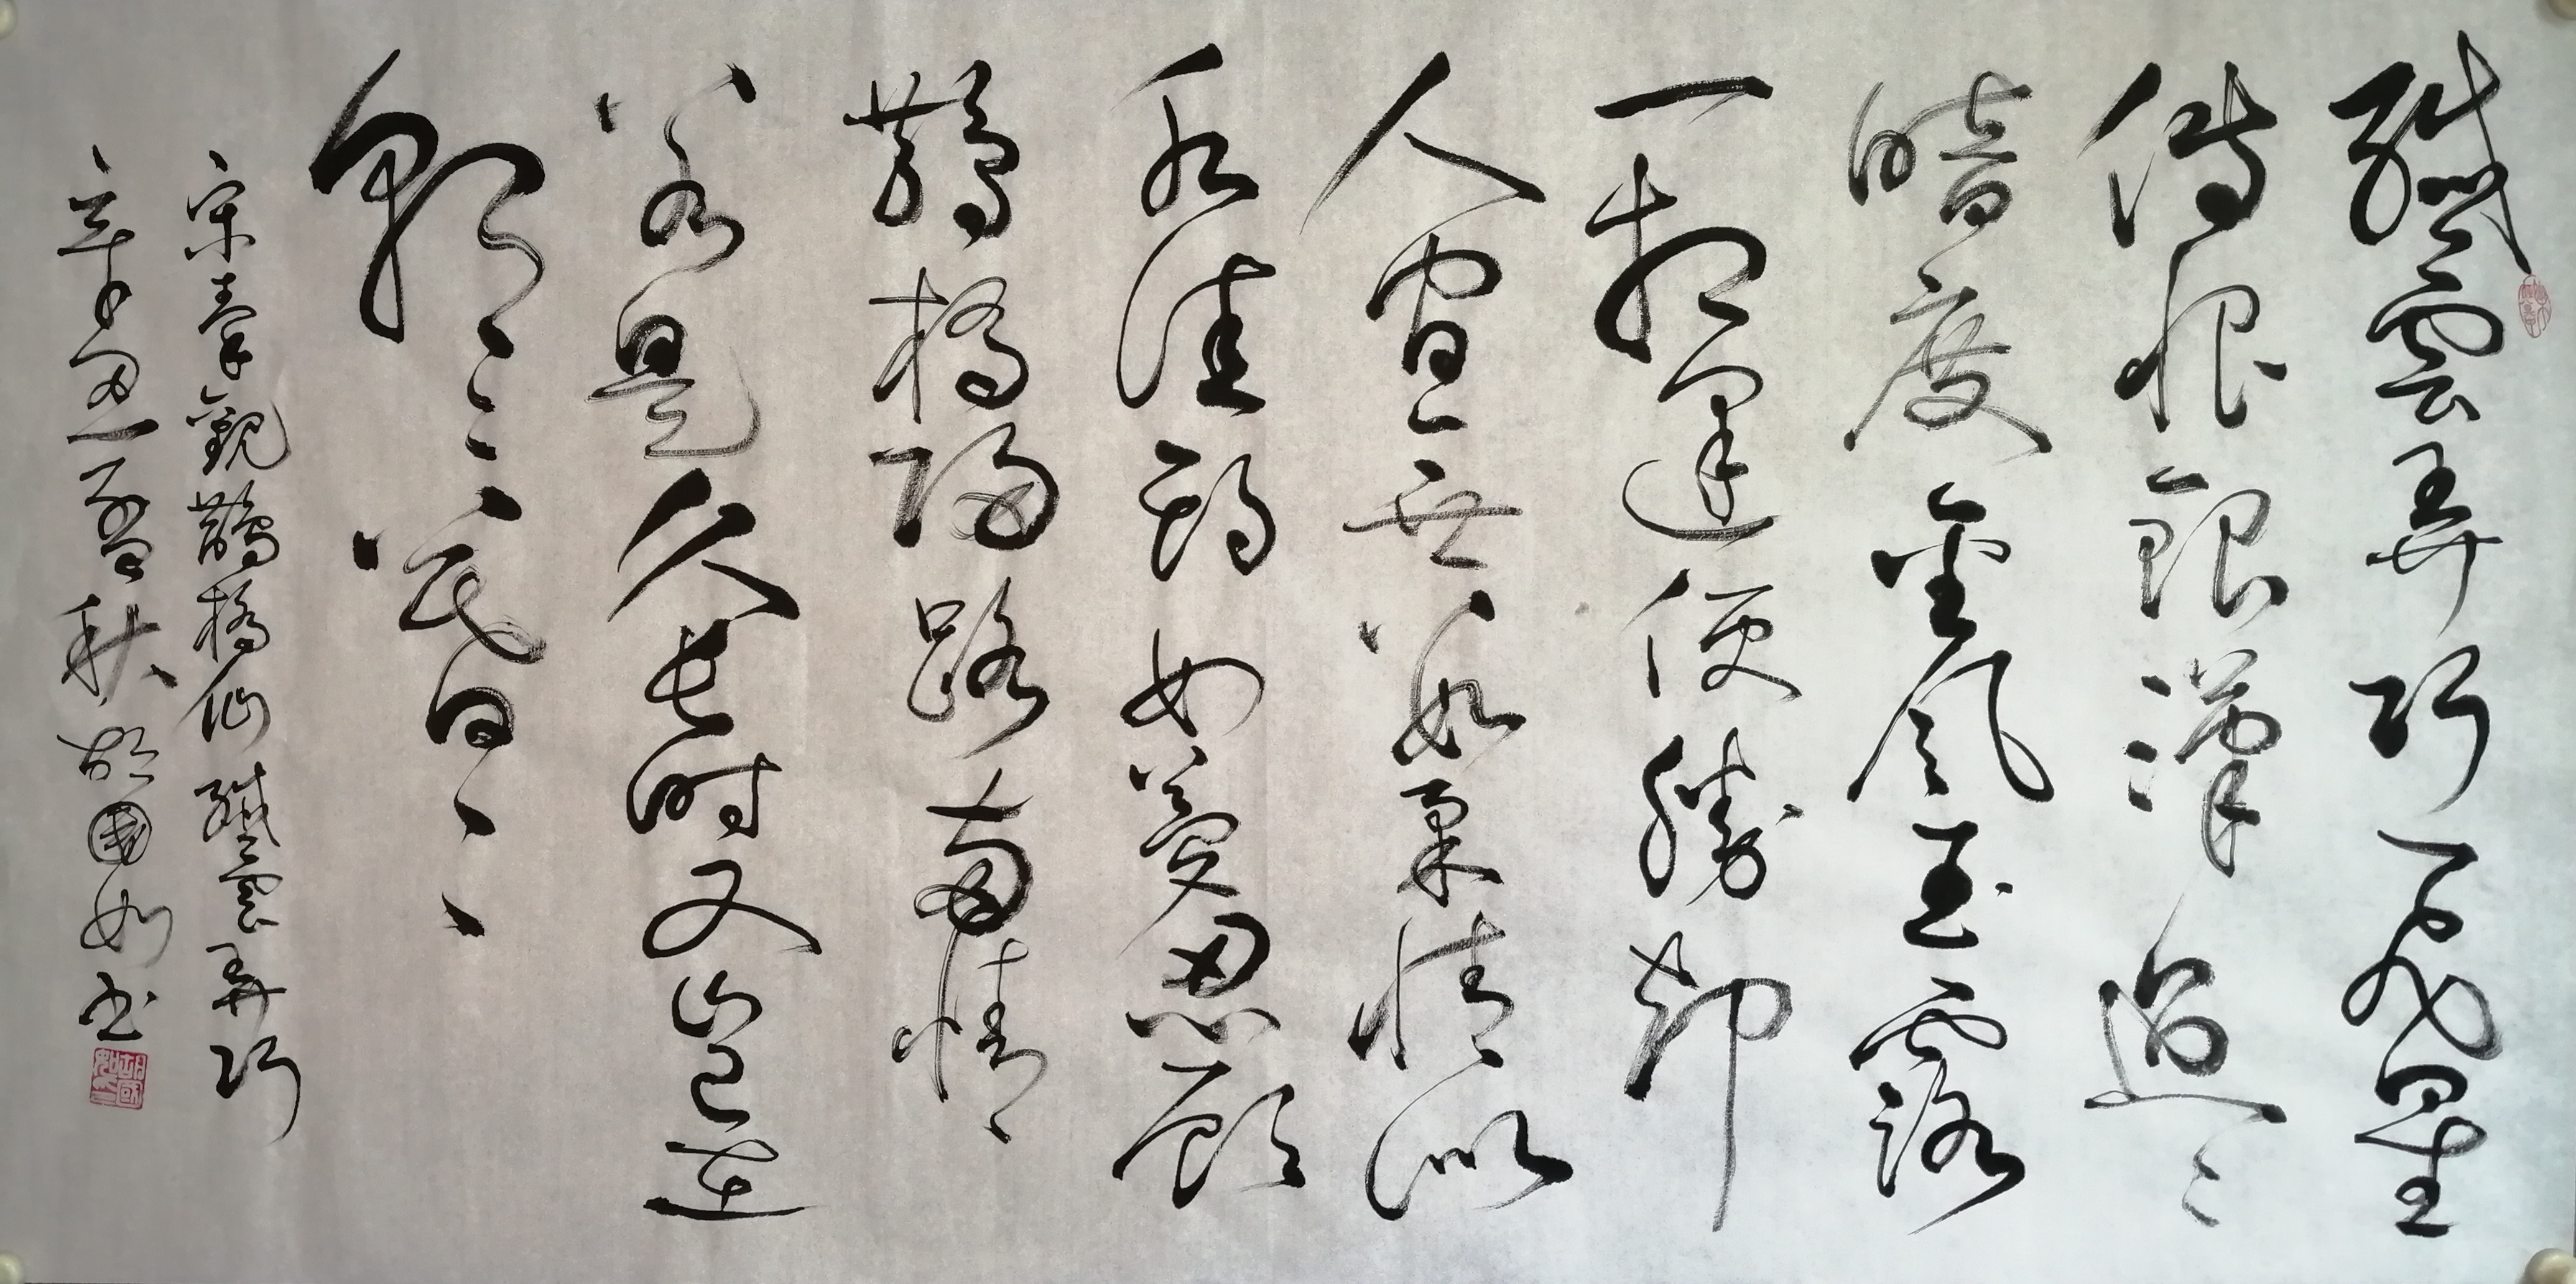 纖雲弄巧飛星
傳恨銀漢迢〻
暗度金風玉露
一相逢便勝卻
人間無數柔情似
水佳期如夢忍顧
鵲橋歸路兩情
若是久長時又豈在
朝〻暮〻
宋秦觀鵲橋仙纖雲弄巧
辛丑孟秋胡國如書